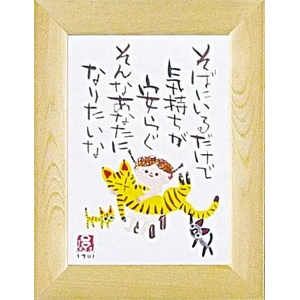 そばにいるだけで
気持ちが
安らぐ
そんなあなたに
なりたいな